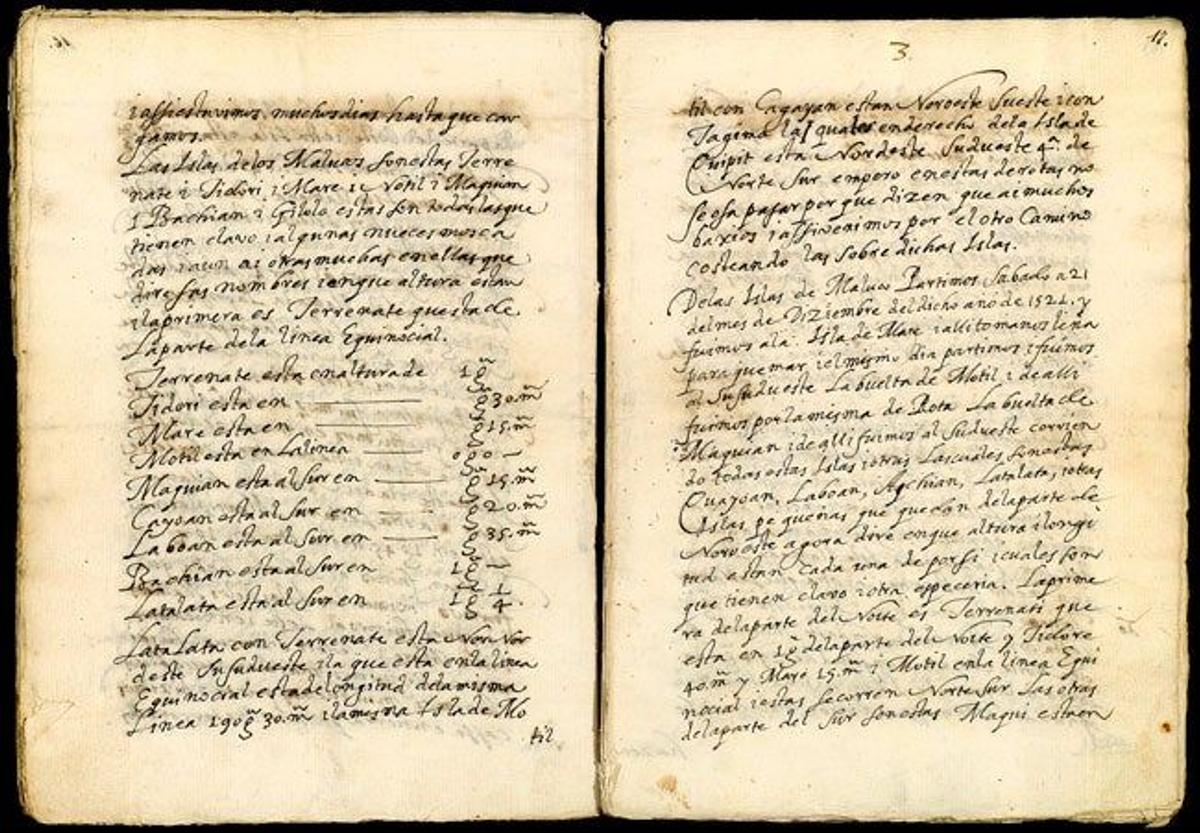 16.
i assi estuvimos muchos dias hasta que car
gamos.
Las Islas de los Malucos son estas Terre
nate i Tidori i Mare i Motil i Maquian
i Bachian i Gilolo estas son todas las que
tienen clavo i algunas nueces mosca
das i aun ai otras muchas en ellas que
dire sus nombres i en que altura estan
i la primera es Terrenate questa de
La parte de la linea Equinocial.
Terrenate esta en altura de 1 g̃
Tidori esta en ——— g̃ 30. m̃
Mare esta en ——— g̃ 15. m̃
Motil esta en La linea —— 0 0 0 —
Maquian esta al Sur en —— g̃ 15. m̃
Cayoan esta al Sur en —— g̃ 20. m̃
Laboan esta al Sur en —— g̃ 35. m̃
Bachian esta al Sur en 1 g̃ —
Latalata esta al Sur en 1 g̃ 1/4.
LataLata con Terrenate esta Nor Nor
deste Susudueste i la que esta en la linea
Equinocial esta de longitud de la misma
Linea 190 g̃ 30. m̃ i la misma Isla de Mo
til
17.
3.
til con Cagayan estan Noroeste Sueste i con
Tagima las quales en derecho de la Isla de
Quipit esta Nordeste Sudueste 4ª. de
Norte Sur empero en estas derotas no
se osa pasar por que dizen que ai muchos
baxios i assi venimos por el otro Camino
costeando las sobre dichas Islas.
De las Islas de Maluco Partimos Sabado a 21
del mes de Diziembre del dicho año de 1521. y
fuimos a la Isla de Mare i alli tomamos leña
para quemar i el mismo dia partimos i fuimos
al Susudueste La buelta de Motil i de alli
fuimos por la misma de Rota La buelta de
Maquian i de alli fuimos al Sudueste corrien
do todas estas Islas i otras Las cuales son estas
Quayoan, Laboan, Agchian, Latalata, i otras
Islas pequeñas que quedan de la parte de
Noroeste agora dire en que altura i longi
tud estan cada una de por si i cuales son
que tienen clavo i otra especeria. La prime
ra de la parte del Norte es Terrenati que
esta en 1 g̃ de la parte del Norte y Tidore
40. m̃ y Mare 15. m̃ i Motil en la linea Equi
nocial i estas se corren Norte Sur Las otras
de la parte del Sur son estas Maqui esta en